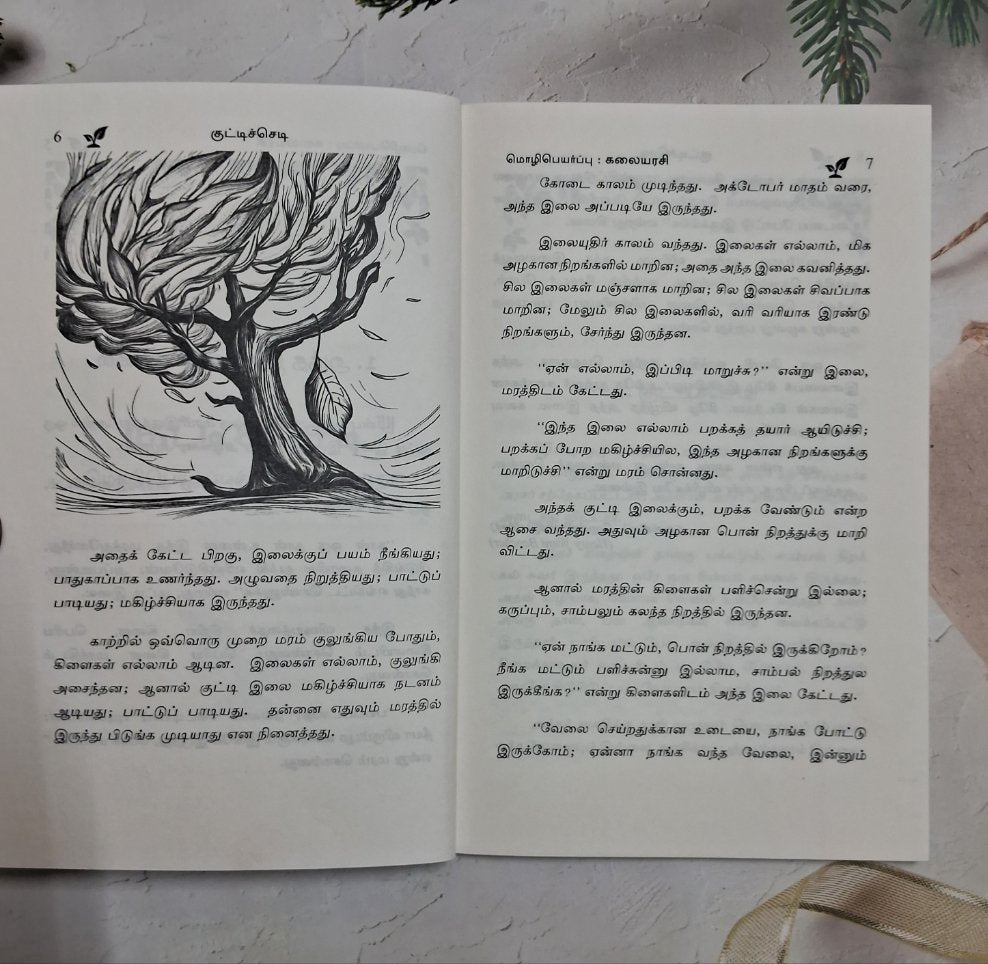 6
குட்டிச்செடி
அதைக் கேட்ட பிறகு, இலைக்குப் பயம் நீங்கியது;
பாதுகாப்பாக உணர்ந்தது. அழுவதை நிறுத்தியது; பாட்டுப்
பாடியது; மகிழ்ச்சியாக இருந்தது.
காற்றில் ஒவ்வொரு முறை மரம் குலுங்கிய போதும்,
கிளைகள் எல்லாம் ஆடின. இலைகள் எல்லாம், குலுங்கி
அசைந்தன; ஆனால் குட்டி இலை மகிழ்ச்சியாக நடனம்
ஆடியது; பாட்டுப் பாடியது. தன்னை எதுவும் மரத்தில்
இருந்து பிடுங்க முடியாது என நினைத்தது.
மொழிபெயர்ப்பு : கலையரசி
7
கோடை காலம் முடிந்தது. அக்டோபர் மாதம் வரை,
அந்த இலை அப்படியே இருந்தது.
இலையுதிர் காலம் வந்தது. இலைகள் எல்லாம், மிக
அழகான நிறங்களில் மாறின; அதை அந்த இலை கவனித்தது.
சில இலைகள் மஞ்சளாக மாறின; சில இலைகள் சிவப்பாக
மாறின; மேலும் சில இலைகளில், வரி வரியாக இரண்டு
நிறங்களும், சேர்ந்து இருந்தன.
“ஏன் எல்லாம், இப்பிடி மாறுச்சு?” என்று இலை,
மரத்திடம் கேட்டது.
“இந்த இலை எல்லாம் பறக்கத் தயார் ஆயிடுச்சி;
பறக்கப் போற மகிழ்ச்சியில, இந்த அழகான நிறங்களுக்கு
மாறிடுச்சி” என்று மரம் சொன்னது.
அந்தக் குட்டி இலைக்கும், பறக்க வேண்டும் என்ற
ஆசை வந்தது. அதுவும் அழகான பொன் நிறத்துக்கு மாறி
விட்டது.
ஆனால் மரத்தின் கிளைகள் பளிச்சென்று இல்லை;
கருப்பும், சாம்பலும் கலந்த நிறத்தில் இருந்தன.
“ஏன் நாங்க மட்டும், பொன் நிறத்தில் இருக்கிறோம்?
நீங்க மட்டும் பளிச்சுன்னு இல்லாம, சாம்பல் நிறத்துல
இருக்கீங்க?” என்று கிளைகளிடம் அந்த இலை கேட்டது.
“வேலை செய்றதுக்கான உடையை, நாங்க போட்டு
இருக்கோம்; ஏன்னா நாங்க வந்த வேலை, இன்னும்